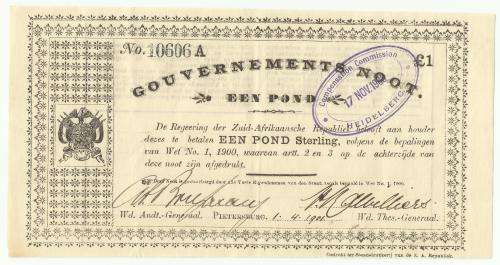 No. 10606 A
£1
GOUVERNEMENTS NOOT.
EEN POND
Compensation Commission
17 NOV
HEIDELBERG
De Regeering der Zuid-Afrikaansche Republiek belooft aan houder
dezes te betalen EEN POND Sterling, volgens de bepalingen
van Wet No. 1, 1900, waarvan artt. 2 en 3 op de achterzijde van
deze noot zijn afgedrukt.
Wd. Audt.-Generaal.
PIETERSBURG, 1-4-1901
Wd. Thes.-Generaal.
Gedrukt ter Staatsdrukkerij van de Z. A. Republiek.